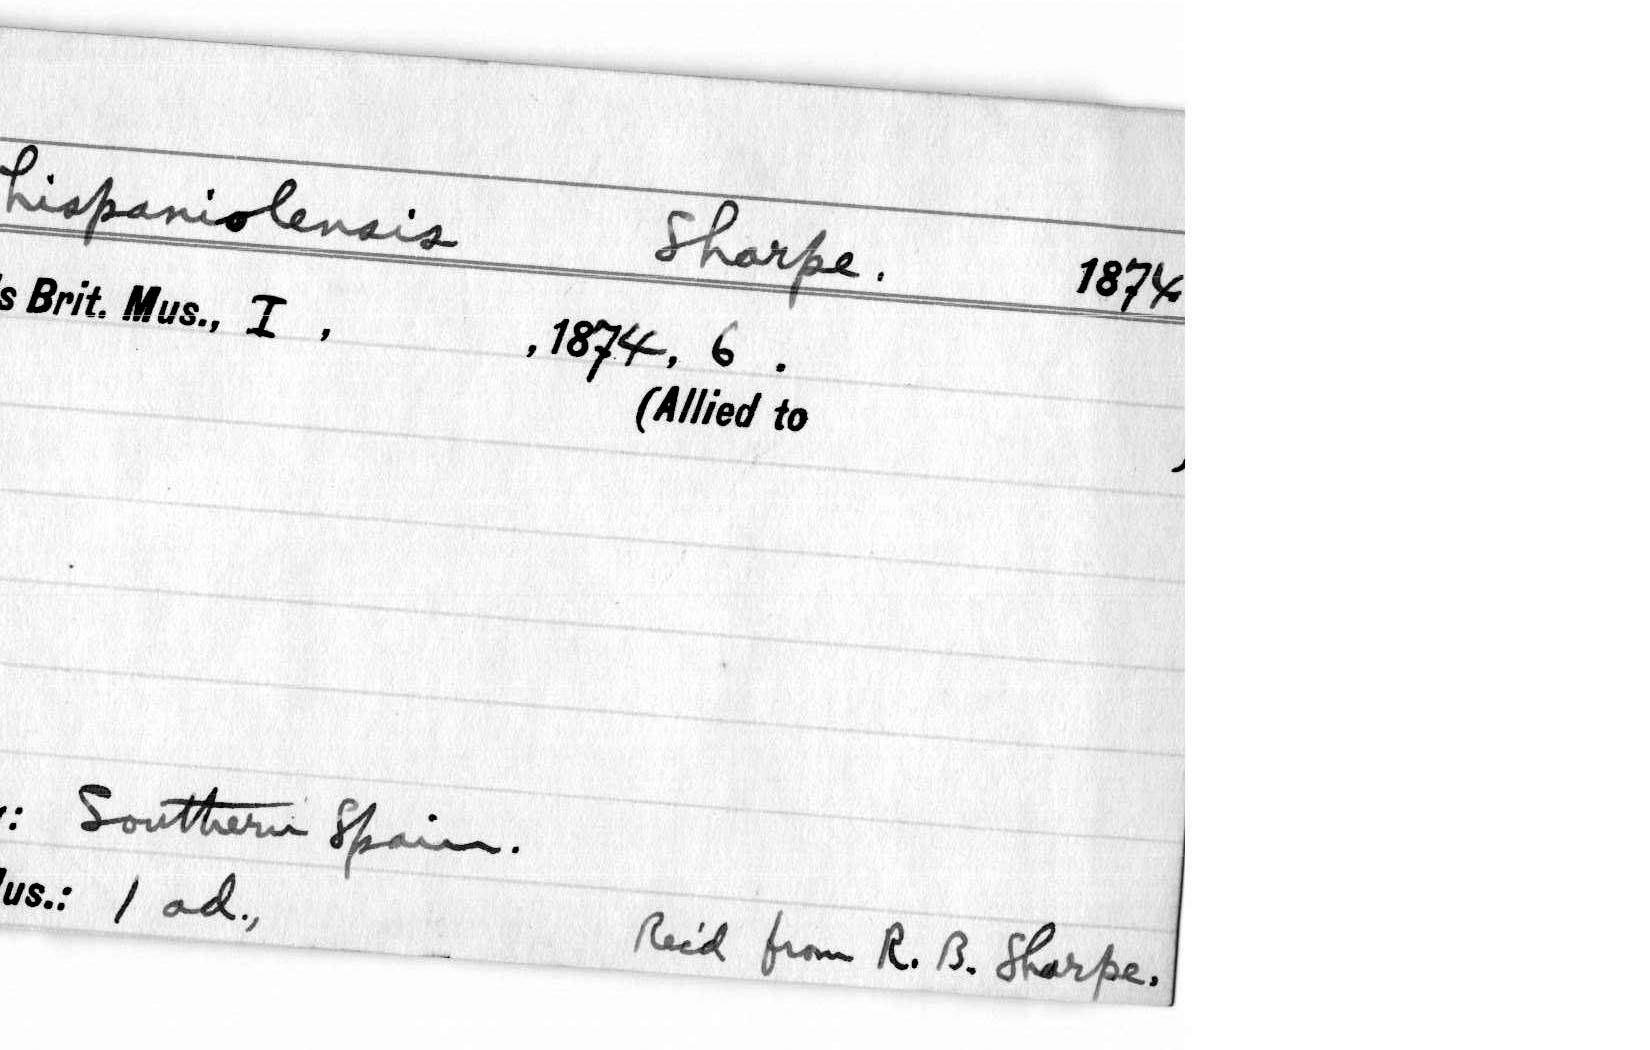 hispaniolensis Sharpe. 1874
s Brit. Mus., I , , 1874, 6 .
(Allied to )
: Southern Spain.
us.: 1 ad., Rec'd from R. B. Sharpe.